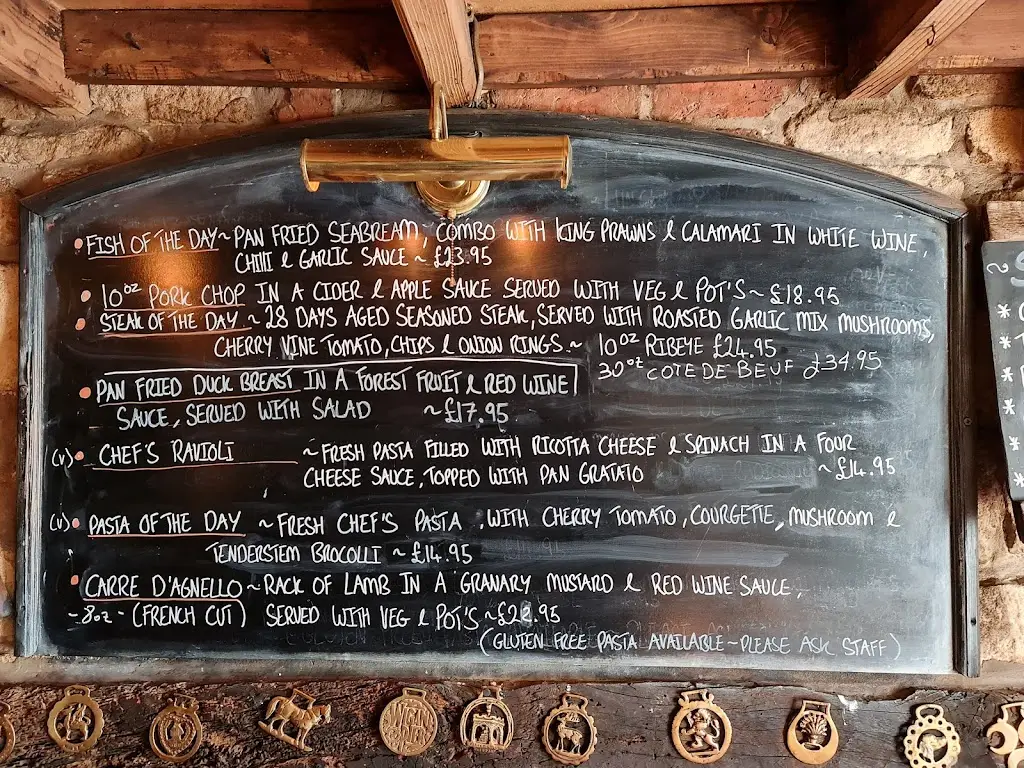 • FISH OF THE DAY ~ PAN FRIED SEABREAM, COMBO WITH KING PRAWNS & CALAMARI IN WHITE WINE,
CHILI & GARLIC SAUCE ~ £23.95
• 10oz PORK CHOP IN A CIDER & APPLE SAUCE SERVED WITH VEG & POT'S ~ £18.95
• STEAK OF THE DAY ~ 28 DAYS AGED SEASONED STEAK, SERVED WITH ROASTED GARLIC MIX MUSHROOMS,
CHERRY VINE TOMATO, CHIPS & ONION RINGS ~ 10oz RIBEYE £24.95
30oz COTE DE BEUF £34.95
• PAN FRIED DUCK BREAST IN A FOREST FRUIT & RED WINE
SAUCE, SERVED WITH SALAD ~ £17.95
(V) • CHEF'S RAVIOLI ~ FRESH PASTA FILLED WITH RICOTTA CHEESE & SPINACH IN A FOUR
CHEESE SAUCE, TOPPED WITH PAN GRATATO ~ £14.95
(V) • PASTA OF THE DAY ~ FRESH CHEF'S PASTA, WITH CHERRY TOMATO, COURGETTE, MUSHROOM &
TENDERSTEM BROCOLLI ~ £14.95
• CARRE D'AGNELLO ~ RACK OF LAMB IN A GRANARY MUSTARD & RED WINE SAUCE,
- 8oz - (FRENCH CUT) SERVED WITH VEG & POT'S ~ £22.95
(GLUTEN FREE PASTA AVAILABLE ~ PLEASE ASK STAFF)